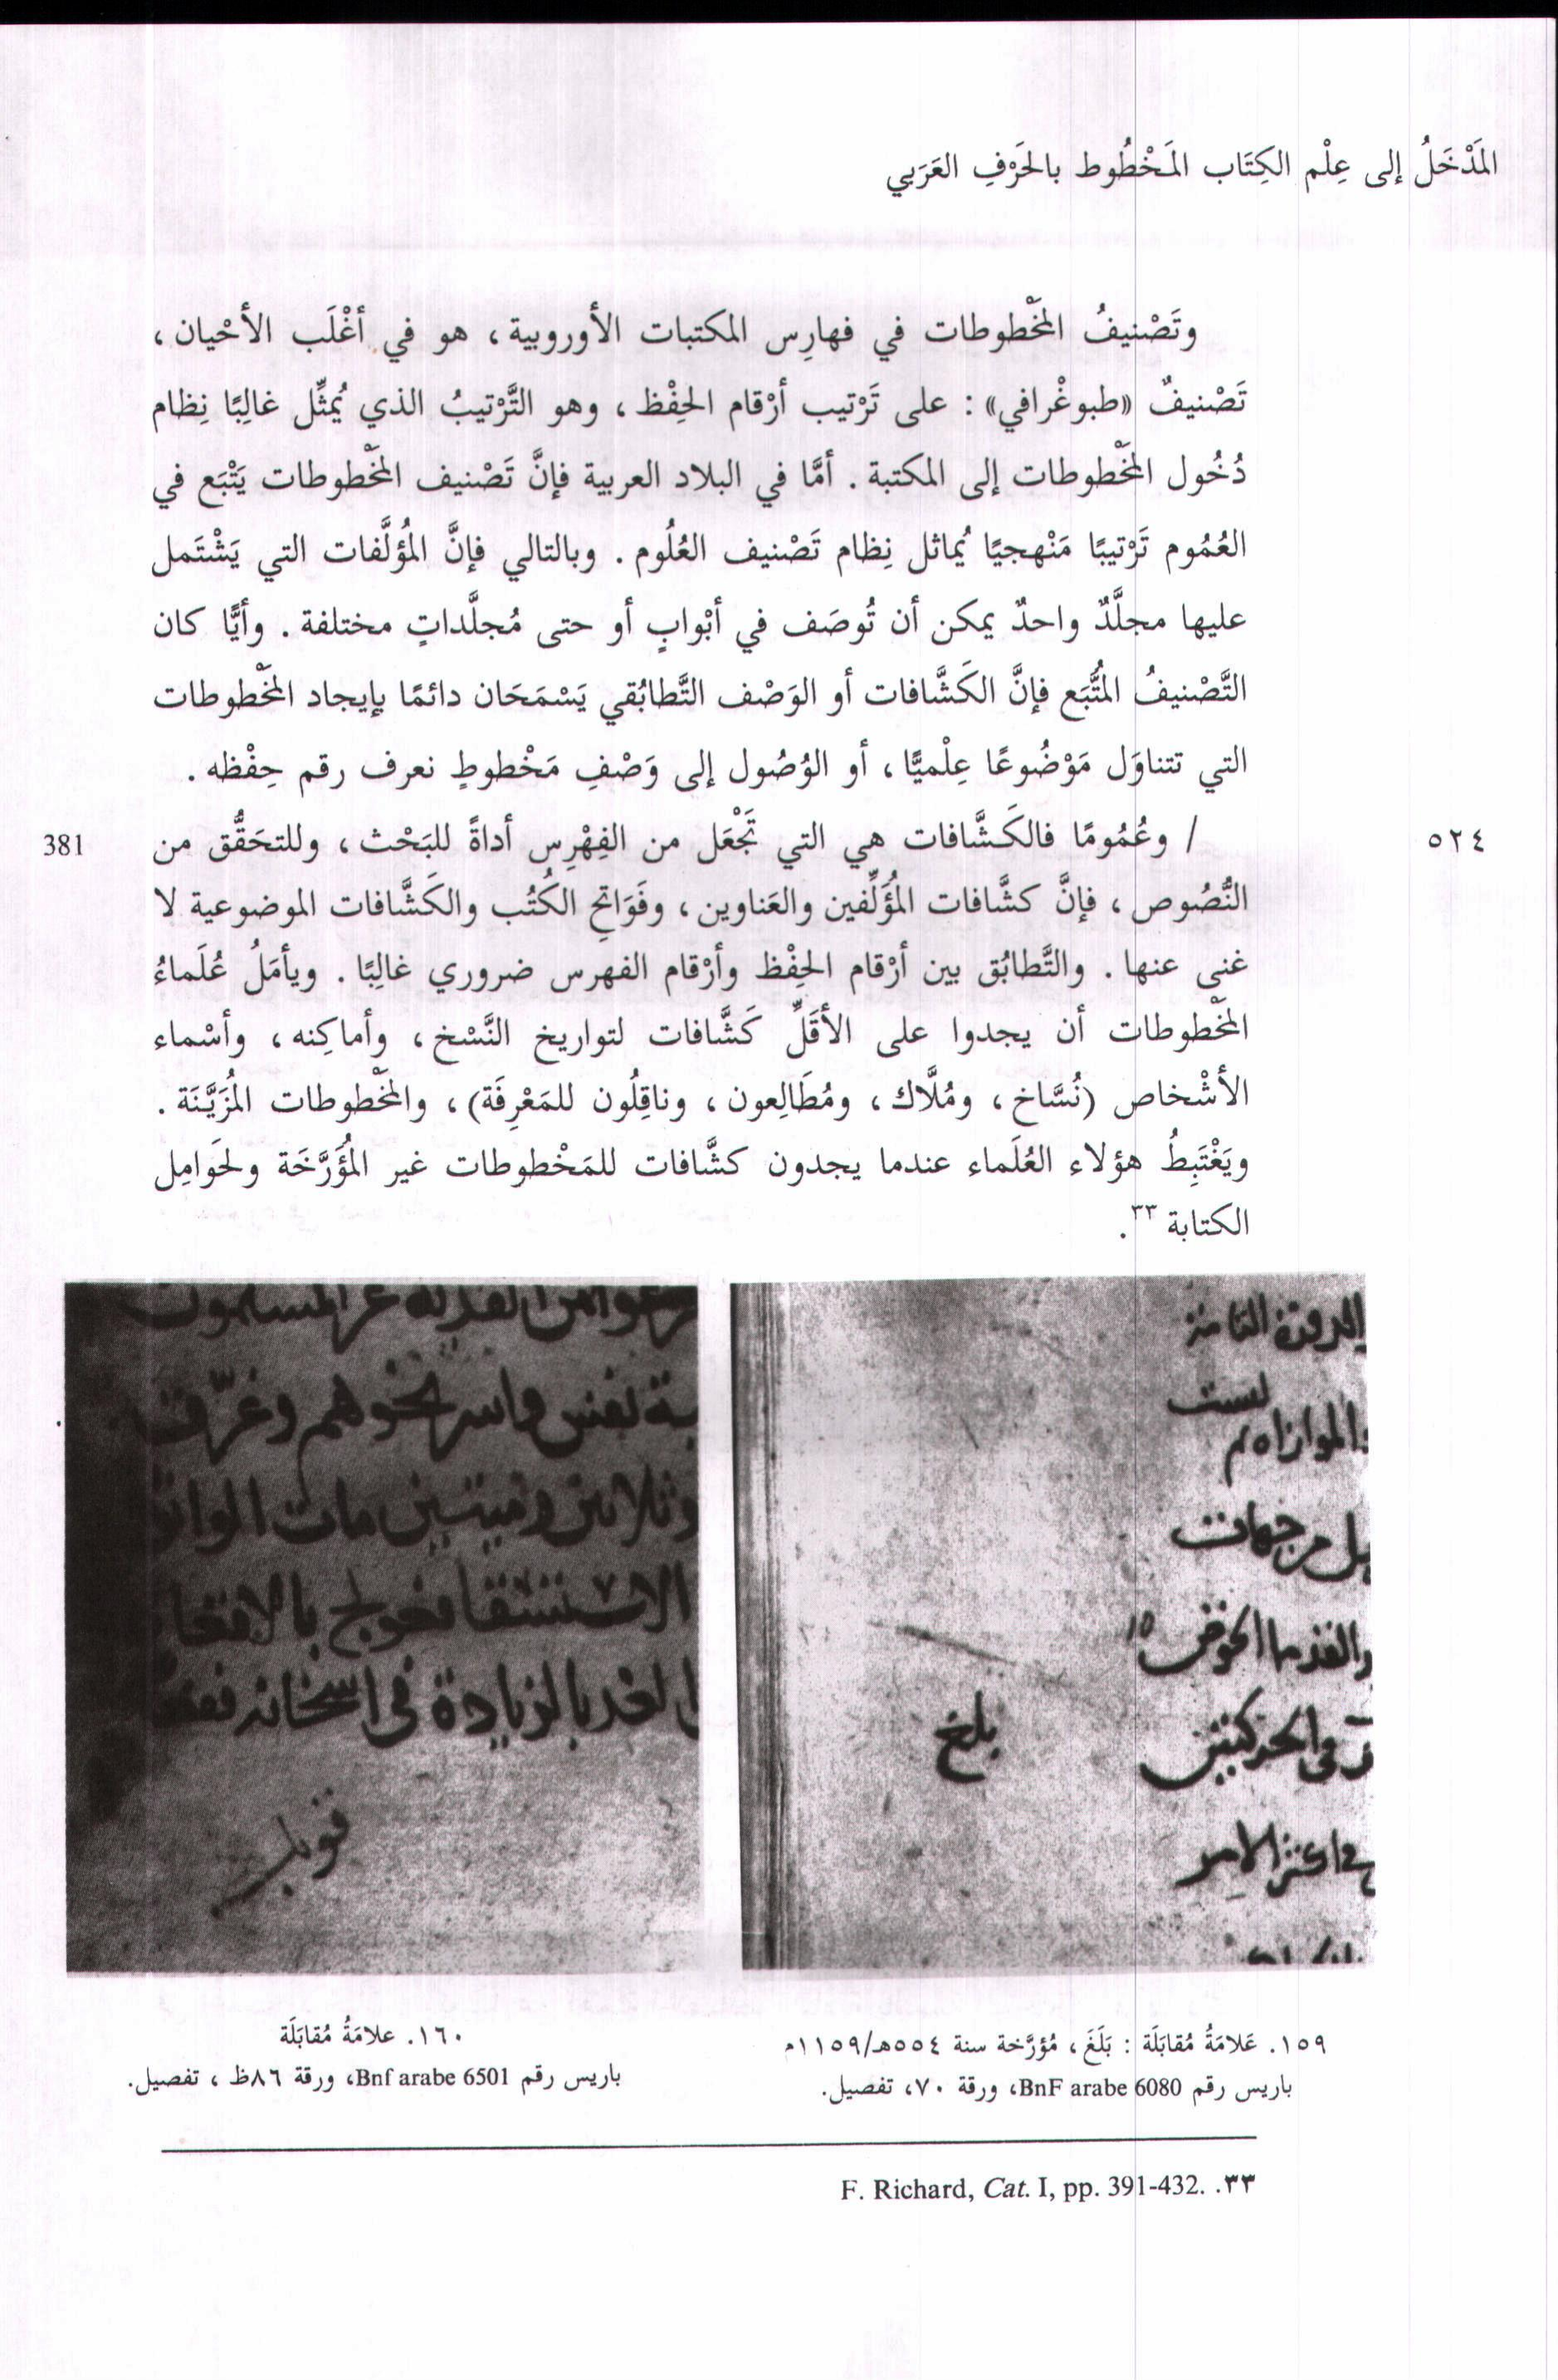 المَدْخَلُ إلى عِلْم الكِتَاب المَخْطُوط بالحَرْفِ العَرَبي
وتَصْنيفُ المَخْطوطات في فهارِس المكتبات الأوروبية، هو في أغْلَب الأحْيان،
تَصْنيفٌ «طبوغْرافي» : على تَرْتيب أرْقام الحِفْظ، وهو التَّرْتيبُ الذي يُمثِّل غالِبًا نِظام
دُخُول المَخْطوطات إلى المكتبة. أمَّا في البلاد العربية فإنَّ تَصْنيف المَخْطوطات يَتْبَع في
العُمُوم تَرْتيبًا مَنْهجيًا يُماثل نِظام تَصْنيف العُلُوم. وبالتالي فإنَّ المُؤلَّفات التي يَشْتَمل
عليها مجلَّدٌ واحدٌ يمكن أن تُوصَف في أبْوابٍ أو حتى مُجلَّداتٍ مختلفة. وأيًّا كان
التَّصْنيفُ المُتَّبَع فإنَّ الكَشَّافات أو الوَصْف التَّطابُقي يَسْمَحَان دائمًا بإيجاد المَخْطوطات
التي تتناوَل مَوْضُوعًا عِلْميًّا، أو الوُصُول إلى وَصْفِ مَخْطوطٍ نعرف رقم حِفْظه.
٥٢٤
/ وعُمُومًا فالكَشَّافات هي التي تَجْعَل من الفِهْرِس أداةً للبَحْث، وللتحَقُّق من
381
النُّصُوص، فإنَّ كشَّافات المُؤَلِّفين والعَناوين، وفَوَاتحِ الكُتُب والكَشَّافات الموضوعية لا
غنى عنها. والتَّطابُق بين أرْقام الحِفْظ وأرْقام الفهرس ضروري غالِبًا. ويأمَلُ عُلَماءُ
المَخْطوطات أن يجدوا على الأقَلِّ كَشَّافات لتواريخ النَّسْخ، وأماكِنه، وأسْماء
الأشْخاص (نُسَّاخ، ومُلَّاك، ومُطَالِعون، وناقِلُون للمَعْرِفَة)، والمَخْطوطات المُزَيَّنَة.
ويَغْتَبِطُ هؤلاء العُلَماء عندما يجدون كشَّافات للمَخْطوطات غير المُؤَرَّخَة ولحَوامِل
الكتابة ٣٣.
بلغ
قوبل
١٥٩. عَلامَةُ مُقابَلَة : بَلَغَ، مُؤرَّخة سنة ٥٥٤هـ/١١٥٩م
باريس رقم BnF arabe 6080، ورقة ٧٠، تفصيل.
١٦٠. علامَةُ مُقابَلَة
باريس رقم Bnf arabe 6501، ورقة ٨٦ظ، تفصيل.
٣٣. F. Richard, Cat. I, pp. 391-432.